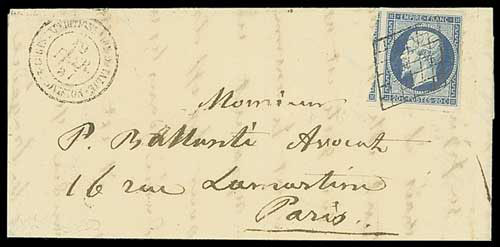 EMPIRE FRANC
20c POSTES 20c
Monsieur
P. Ballanti Avocat
16 rue Lamartine
Paris.